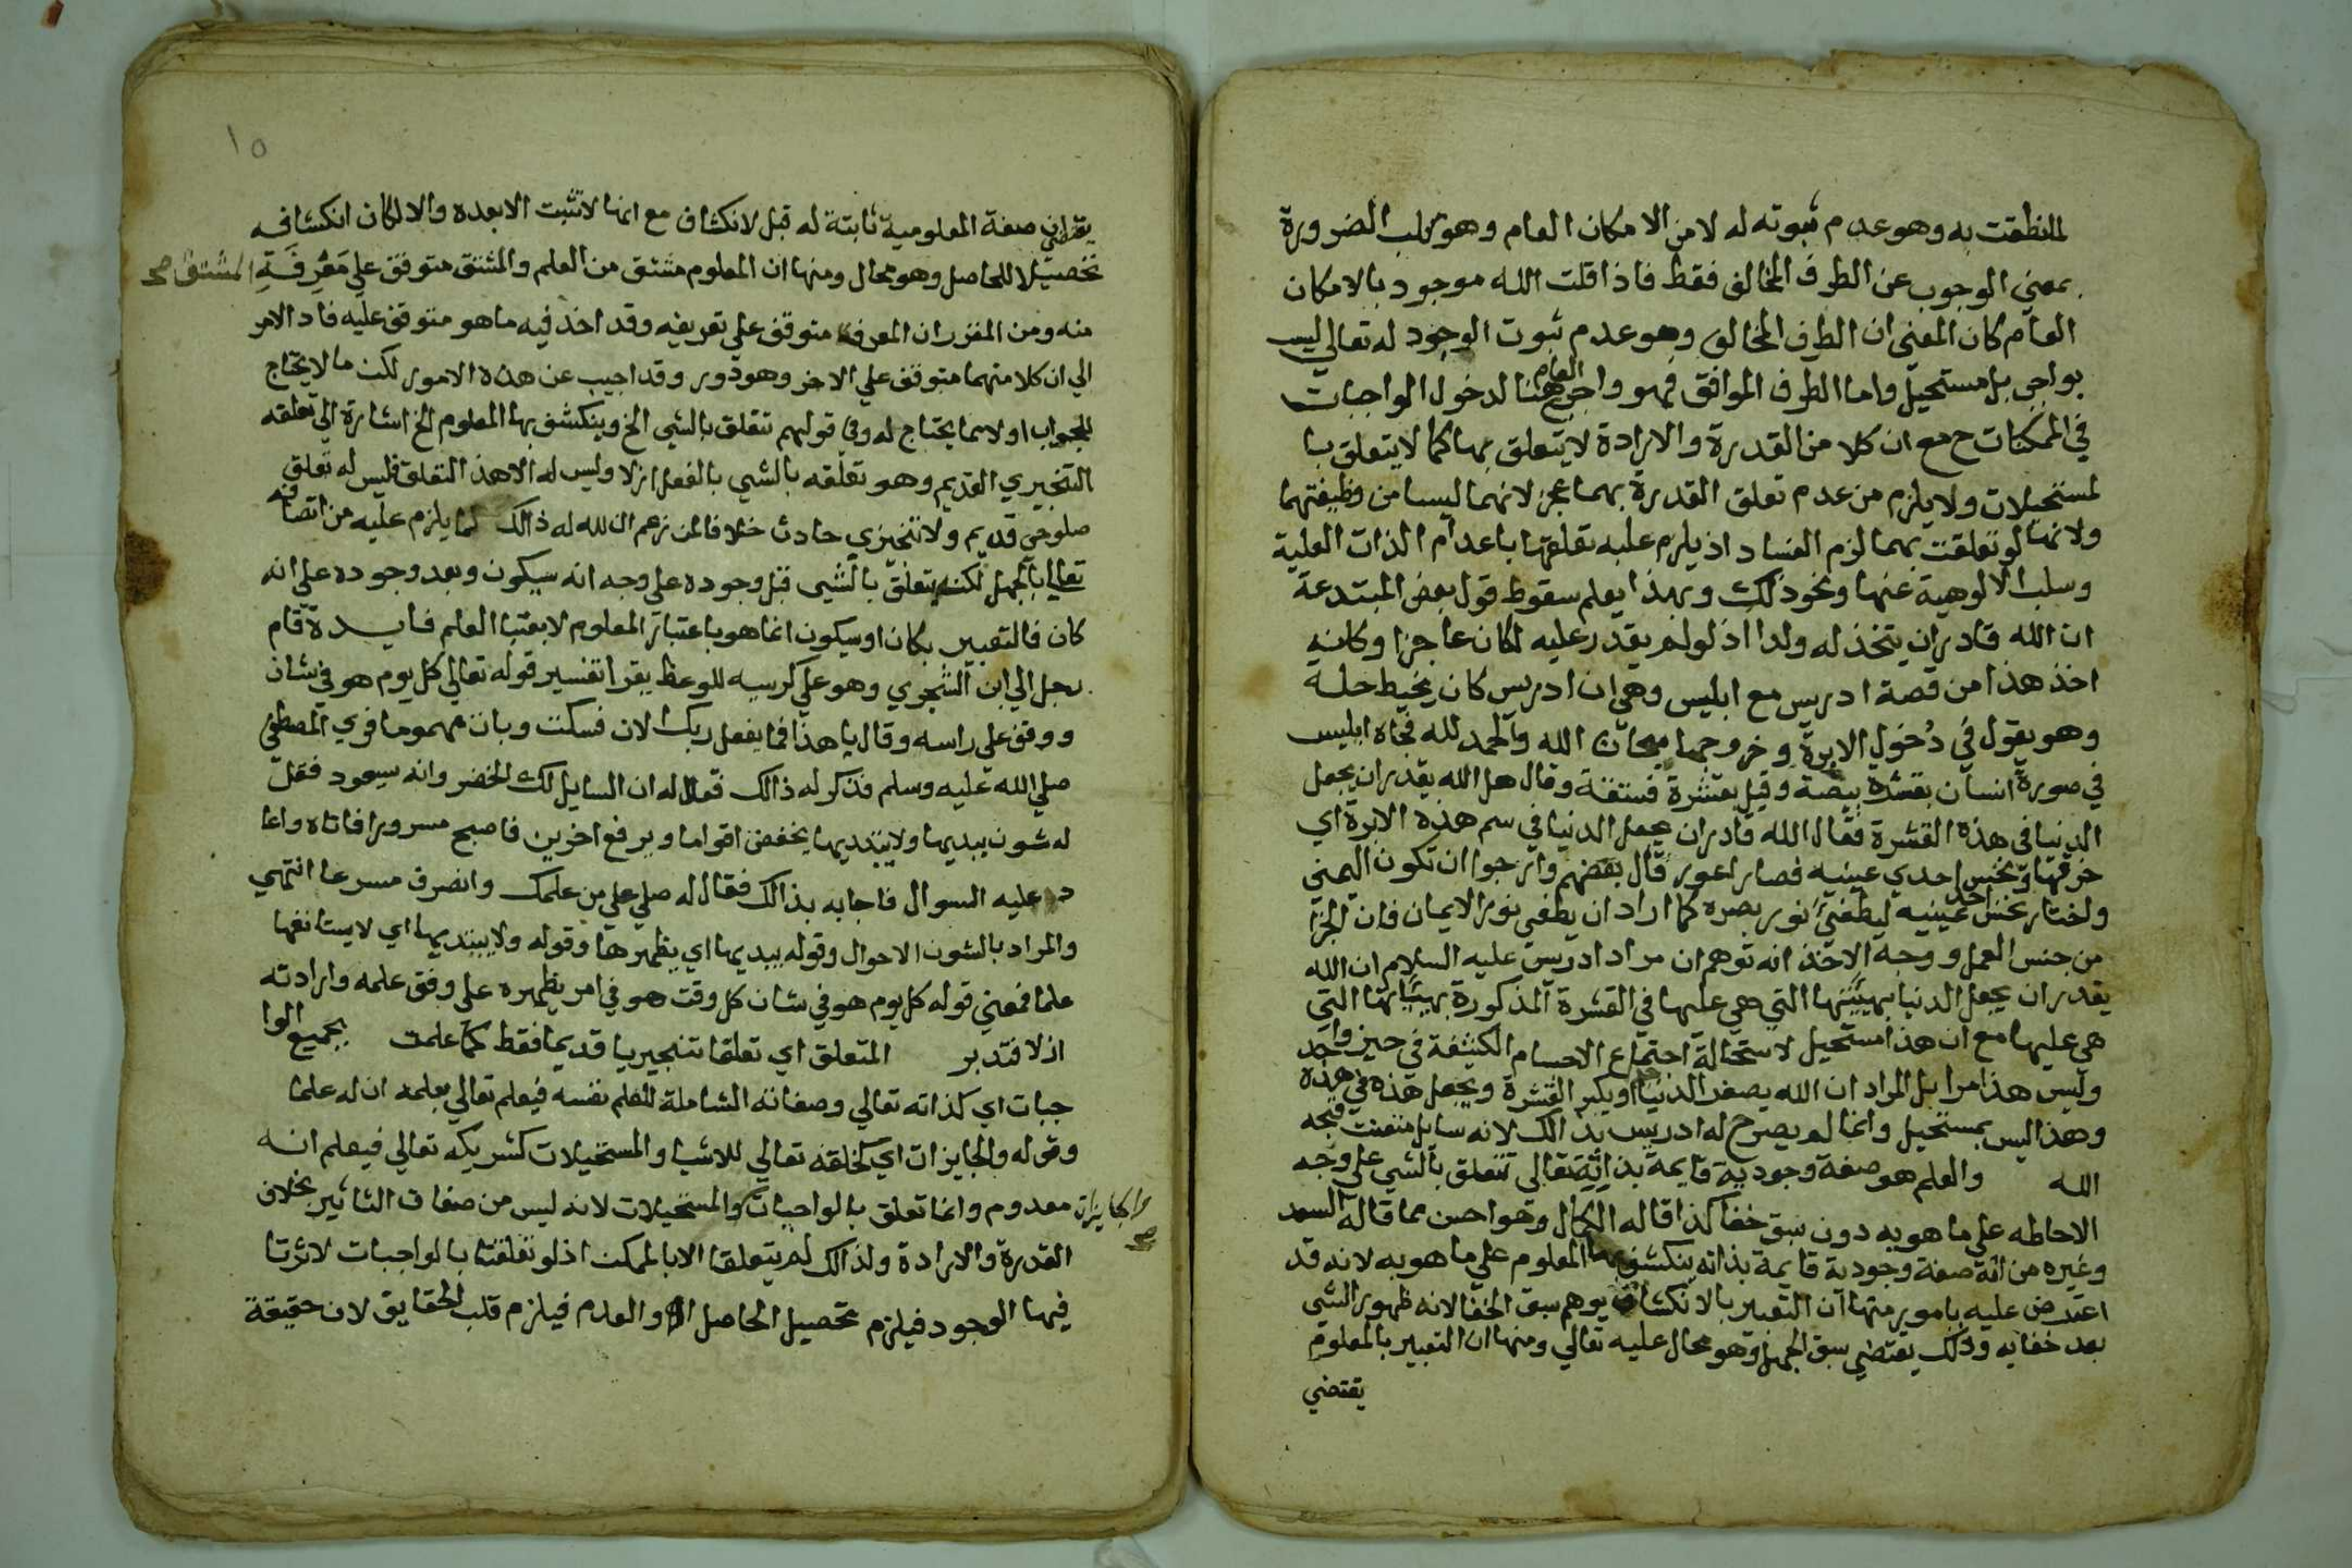 لما نطقت به وهو عدم ثبوته له لا من الامكان العام وهو سلب الضرورة
بمعني الوجوب عن الطرف المخالف فقط فاذا قلت الله موجود بالامكان
العام كان المعني ان الطرف المخالف وهو عدم ثبوت الوجود له تعالي ليس
بواجب بل مستحيل واما الطرف الموافق فهو واجب هنا لدخول الواجبات
العام
في الممكنات ح مع ان كلا من القدرة والارادة لا يتعلق بها كما لا يتعلق با
لمستحيلات ولا يلزم من عدم تعلق القدرة بهما عجز لانهما ليسا من وظيفتهما
ولانها لو تعلقت بهما لزم الفساد اذ يلزم عليه تعلقها باعدام الذات العلية
وسلب الالوهية عنها ونحو ذلك وبهذا يعلم سقوط قول بعض المبتدعة
ان الله قادر ان يتخذ له ولدا اذ لو لم يقدر عليه لكان عاجزا وكانه
اخذ هذا من قصة ادريس مع ابليس وهي ان ادريس كان يخيط حلة
وهو يقول في دُخول الابرة وخروجها سبحان الله والحمد لله فجاه ابليس
في صورة انسان بقشرة بيضة وقيل بقشرة فستقة وقال هل الله يقدر ان يجعل
الدنيا في هذه القشرة فقال الله قادر ان يجعل الدنيا في سم هذه الابرة اي
خرقها ونخس احدي عينيه فصار اعور قال بعضهم وارجوا ان تكون اليمني
واختار نخس احد عينيه ليطفئ نور بصره كما اراد ان يطفي نور الايمان فان الجزا
من جنس العمل ووجه الاخذ انه توهم ان مراد ادريس عليه السلام ان الله
يقدر ان يجعل الدنيا بهيئتها التي هي عليها في القشرة المذكورة بهيئاتها التي
هي عليها مع ان هذا مستحيل لاستحالة اجتماع الاجسام الكثيفة في حيز واحد
وليس هذا مرا بل المراد ان الله يصغر الدنيا جدا او يكبر القشرة ويجعل هذه في هذه
وهذا ليس بمستحيل وانما لم يصرح له ادريس بذالك لانه سايل متعنت قبحه
الله والعلم هو صفة وجودية قايمة بذاته تعالي تتعلق بالشي علي وجه
الاحاطه علي ما هو به دون سبق خفا كذا قاله الكمال وهو احسن مما قاله السعد
وغيره من انه صفة وجودية قايمة بذاته ينكشف بها المعلوم علي ما هو به لانه قد
اعترض عليه بامور منها ان التعبير بالانكشاف يوهم سبق الخفا لانه ظهور الشي
بعد خفايه وذلك يقتضي سبق الجهل وهو محال عليه تعالي ومنها ان التعبير بالمعلوم
يقتضي
١٥
يقتضي ان صفة المعلومية ثابتة له قبل لانكشاف مع انها لا تثبت الا بعده والا لكان انكشافه
تحصيلا للحاصل وهو محال ومنها ان المعلوم مشتق من العلم والمشتق متوقف علي مَعْرِفَةِ المشتق صح
منه ومن المقرر ان المعرف متوقف علي تعريفه وقد اخذ فيه ما هو متوقف عليه فاد الامر
الي ان كلا منهما متوقف علي الاخر وهو دور وقد اجيب عن هذه الامور لكن ما لا يحتاج
لجواب اولا مما يحتاج له وفي قولهم تتعلق بالشي الخ وينكشف بها المعلوم الخ اشارة الي تعلقه
التنجيزي القديم وهو تعلقه بالشي بالفعل ازلا وليس له الا هذا التعلق فليس له تعلق
صلوحي قديم ولا تنجيزي حادث خلافا لمن زعم ان لله له ذالك لما يلزم عليه من اتصافه
تعالي بالجهل لكنه يتعلق بالشي قبل وجوده علي وجه انه سيكون وبعد وجوده علي انه
كان فالتعبير بكان او سيكون انما هو باعتبار المعلوم لا بعتبا العلم فايدة قام
رجل الي ابن الشجري وهو علي كرسيه للوعظ يقرا تفسير قوله تعالي كل يوم هو في شان
ووقف علي راسه وقال يا هذا فما يفعل ربك الان فسكت وبات مهموما فري المصطفي
صلي الله عليه وسلم فذكر له ذالك فقال له ان السايل لك الخضر وانه سيعود فقل
له شون يبديها ولا يبتديها يخفض اقواما ويرفع اخرين فاصبح مسرورا فاتاه واعا
د عليه السوال فاجابه بذالك فقال له صلي علي من علمك وانصرف مسرعا انتهي
والمراد بالشون الاحوال وقوله يبديها اي يظهرها وقوله ولا يبتديها اي لا يستانفها
علما فمعني قوله كل يوم هو في شان كل وقت هو في امر يظهره علي وفق علمه وارادته
ازلا فتدبر المتعلق اي تعلقا تنجيزيا قديما فقط كما علمت بجميع الوا
جبات اي كذاته تعالي وصفاته الشاملة للعلم نفسه فيعلم تعالي بعلمه ان له علما
وقوله والجايزات اي كخلقه تعالي للاشيا والمستحيلات كشريكه تعالي فيعلم انه
معدوم وانما تعلق بالواجبات والمستحيلات لانه ليس من صفات التاثير بخلاف
والجايزات صح
القدرة والارادة ولذالك لم يتعلقا الا بالممكن اذ لو تعلقتا بالواجبات لاثرتا
فيها الوجود فيلزم تحصيل الحاصل او العدم فيلزم قلب الحقايق لان حقيقة